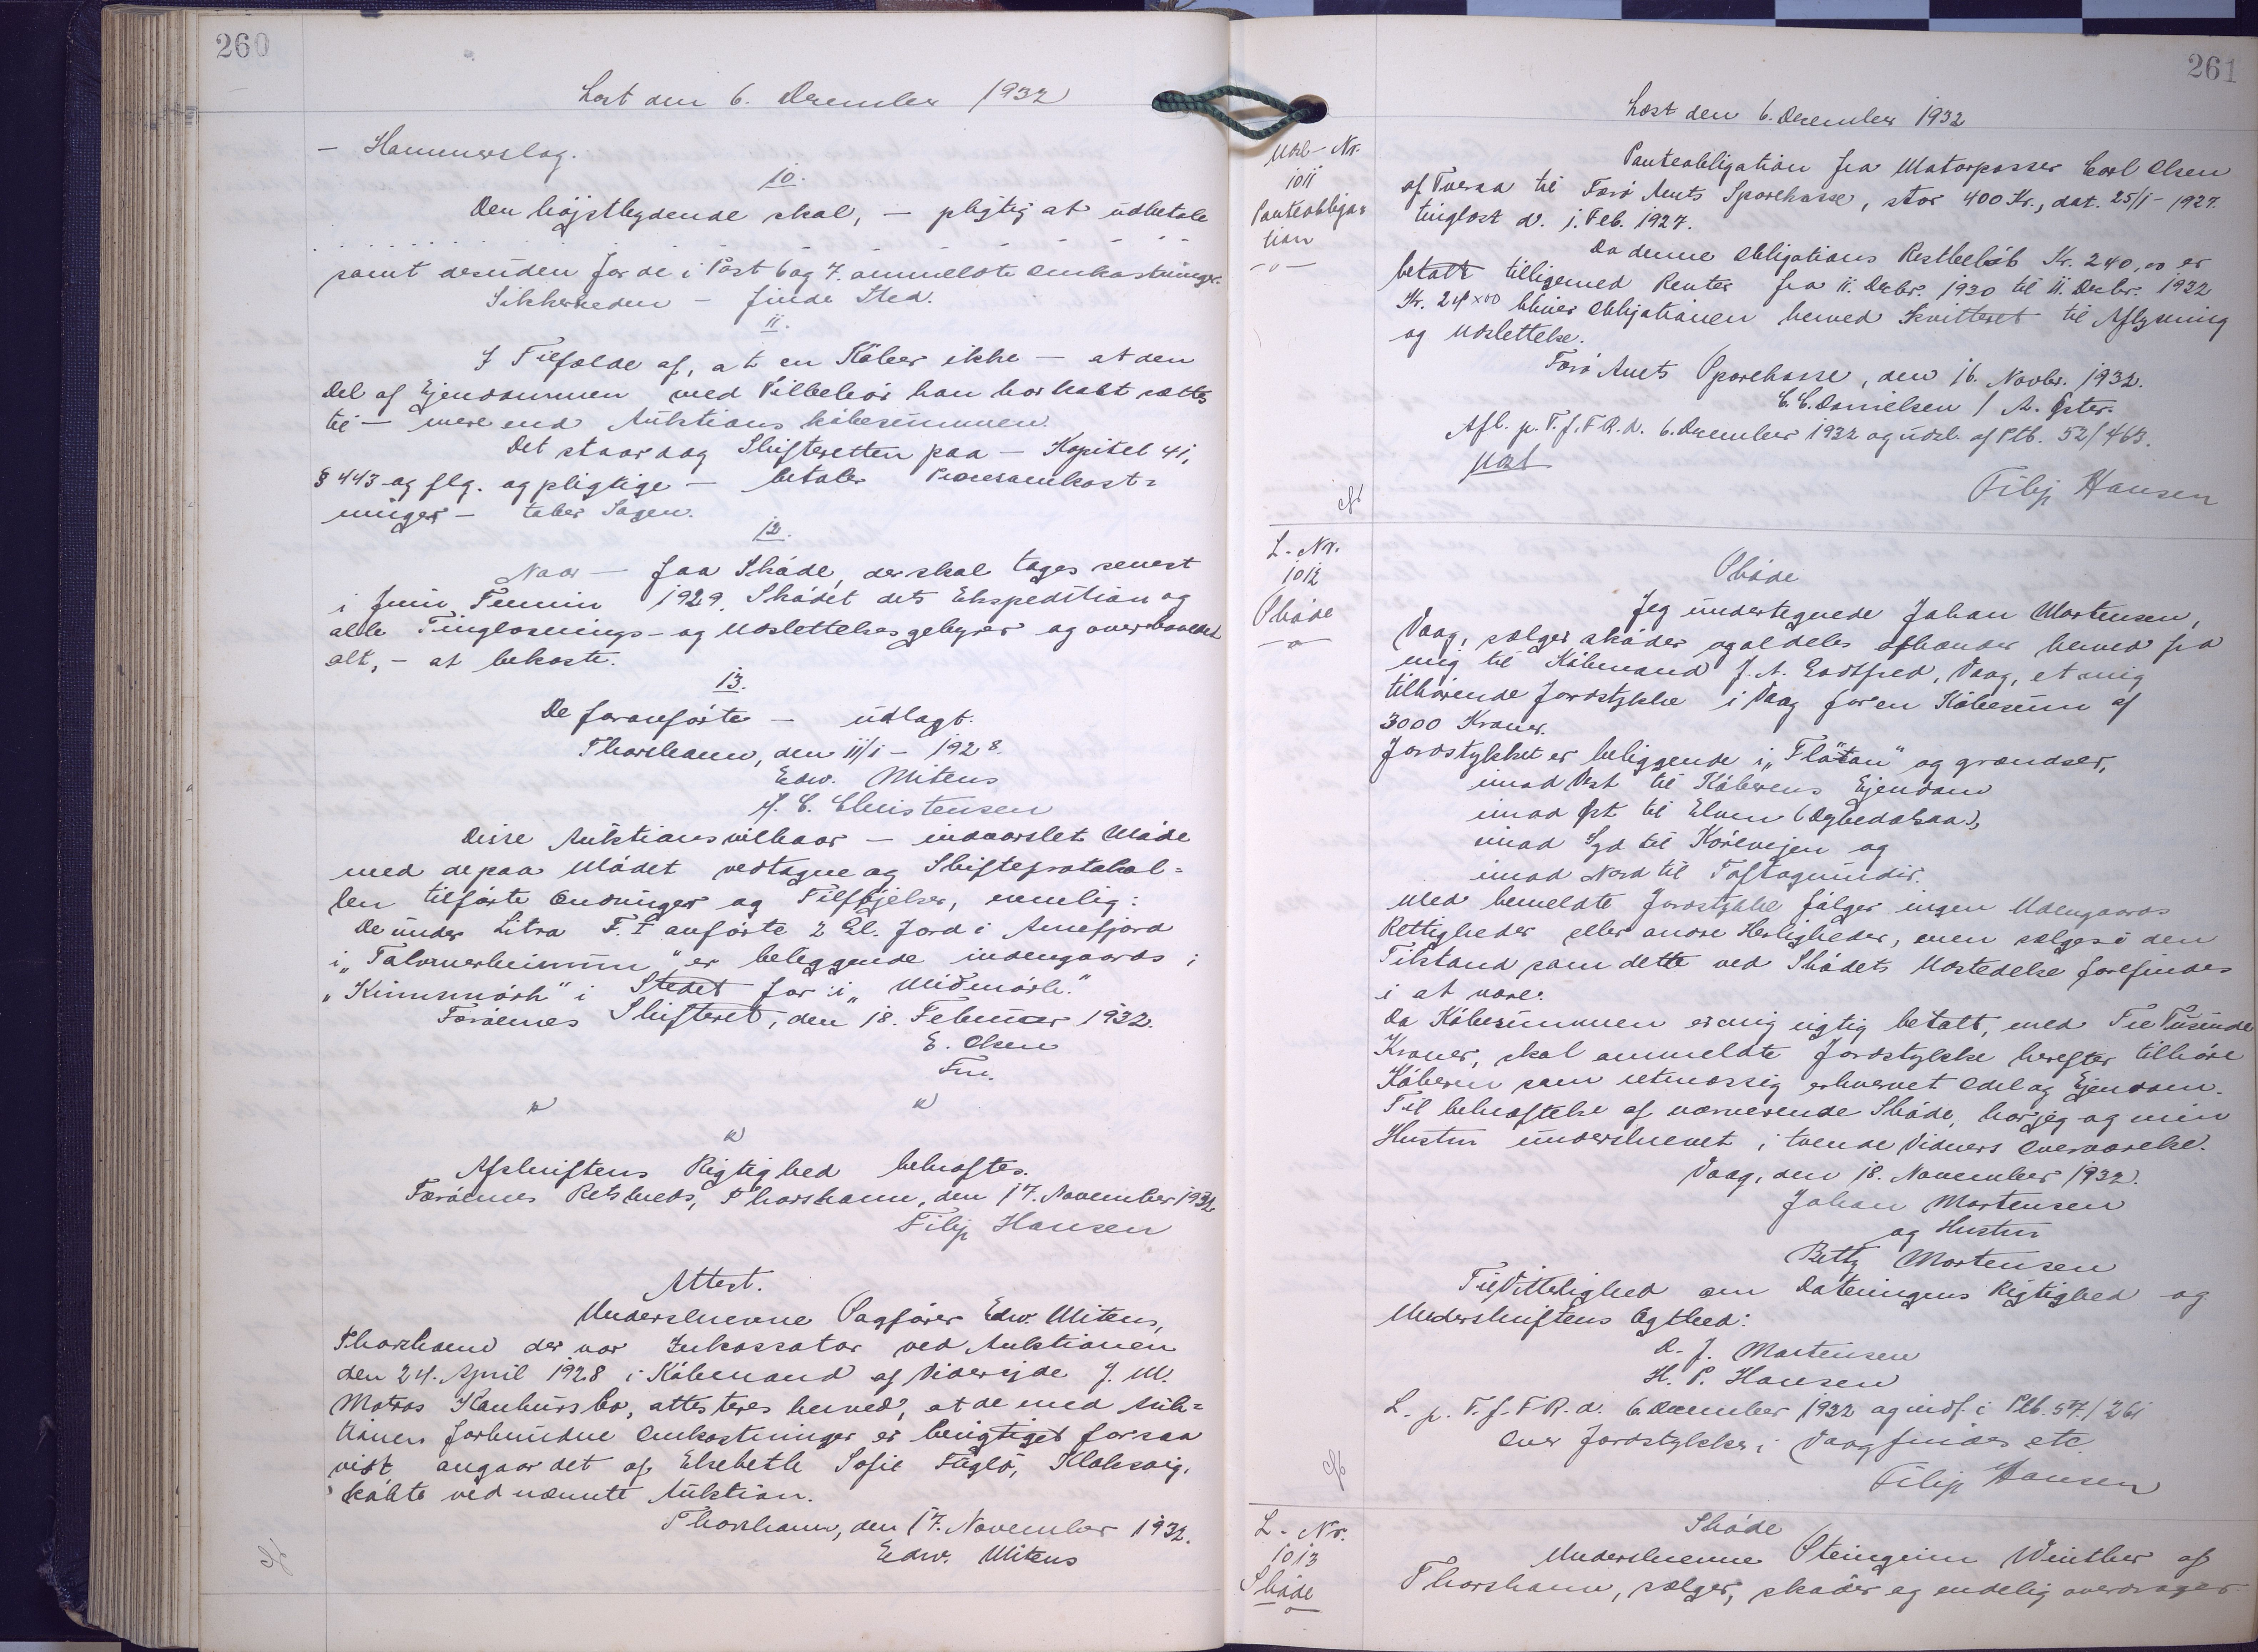 260
Læst den 6. December 1932
– Hammerslag.
10.
Den højstbydende skal, – pligtig at udbetale
samt desuden for de i Post 6 og 7. ommeldte Omkostninger.
Sikkerheden – finde Sted.
11.
I Tilfælde af, at en Køber ikke – at den
Del af Ejendommen med Tilbehør han har købt sættes
til – mere end Auktionskøbesummen.
Det staar dog Skifteretten paa – Kapitel 41,
§ 443 og flg. og pligtige – betaler Procesomkost=
ninger – taber Sagen.
12.
Naar – faa Skøde, der skal tages senest
i Juni Termin 1929. Skødet dets Ekspedition og
alle Tinglæsnings- og Udslettelsesgebyrer og overhovedet
alt, – at bekoste.
13.
De foranførte – udlagt.
Thorshavn, den 11/1 – 1928.
Edw. Mitens
J. C. Christensen
Disse Auktionsvilkaar – indvarslet Møde
med de paa Mødet vedtagne og Skifteprotokol=
len tilførte Ændringer og Tilføjelser, nemlig:
De under Litra F. I anførte 2 Gl. Jord i Arnefjord
i er beliggende indengaards i
i Stedet for i „Miðmørk."
Færøernes Skifteret, den 18. Februar 1932.
E. Olsen
Fm.
Afskriftens Rigtighed bekræftes.
Færøernes Retskreds, Thorshavn, den 17. November 1932
Filip Hansen
Attest.
Underskrevne Sagfører Edw. Mitens,
Thorshavn der var Inkassator ved Auktionen
den 24. April 1928 i Købmand af Viderejde J. M.
Matras Konkursbo, attesteres herved, at de med Auk=
tionen forbundne Omkostninger er berigtiget forsaa
vidt angaar det af Elsebeth Sofie Fuglø, Klaksvig,
købte ved nævnte Auktion.
Thorshavn, den 17. November 1932.
Edw. Mitens
261
Læst den 6. December 1932
Udsl- Nr.
1011
Panteobliga=
tion
Panteobligation fra Motorpasser Carl Olsen
af Tveraa til Færø Amts Sparekasse, stor 400 Kr., dat. 25/1 – 1927.
tinglæst d. 1. Feb. 1927.
Da denne Obligations Restbeløb Kr. 240,00 er
betalt tilligemed Renter fra 11. Decbr. 1930 til 11. Decbr. 1932
Kr. 24 x 00 bliver Obligationen herved kvitteret til Aflysning
og Udslettelse.
Færø Amts Sparekasse, den 16. Novbr. 1932.
C. C. Danielsen / A. Øster.
Afl. p. T. f. F. R. d. 6. December 1932 og udsl. af Ptb. 52/463.
Udsl
Filip Hansen
L - Nr.
1012
Skøde
Skøde
Jeg undertegnede Johan Mortensen,
Vaag, sælger skøder og aldeles afhænder herved fra
mig til Købmand J. A. Godtfred, Vaag, et mig
tilhørende Jordstykke i Vaag for en Købesum af
3000 Kroner.
Jordstykket er beliggende i „Fløtan" og grændser,
imod Vest til Køberens Ejendom
imod Øst til Elven
imod Syd til Kørevejen og
imod Nord til Toftagundir.
Med bemeldte Jordstykke følger ingen Udengaards
Rettigheder eller andre Herligheder, men sælges i den
Tilstand som dette ved Skødets Udstedelse forefindes
i at være.
Da Købesummen er mig rigtig betalt, med Tre Tusinde
Kroner, skal ommeldte Jordstykke herefter tilhøre
Køberen som retmæssig erhvervet Odel og Ejendom.
Til bekræftelse af nærværende Skøde, har jeg og min
Hustru underskrevet i tvende Vidners Overværelse.
Vaag, den 18. November 1932.
Johan Mortensen
og Hustru
Betty Mortensen
Til Vitterlighed om Dateringens Rigtighed og
Underskriftens Ægthed:
D. J. Mortensen
H. P. Hansen
L. p. T. f. F R. d. 6 December 1932 og indf. i Ptb. 57. / 261
Over Jordstykker i Vaag findes etc.
Filip Hansen
L - Nr.
1013
Skøde
Skøde
Underskrevne Steingrim Winther af
Thorshavn, sælger, skøder og endelig overdrager